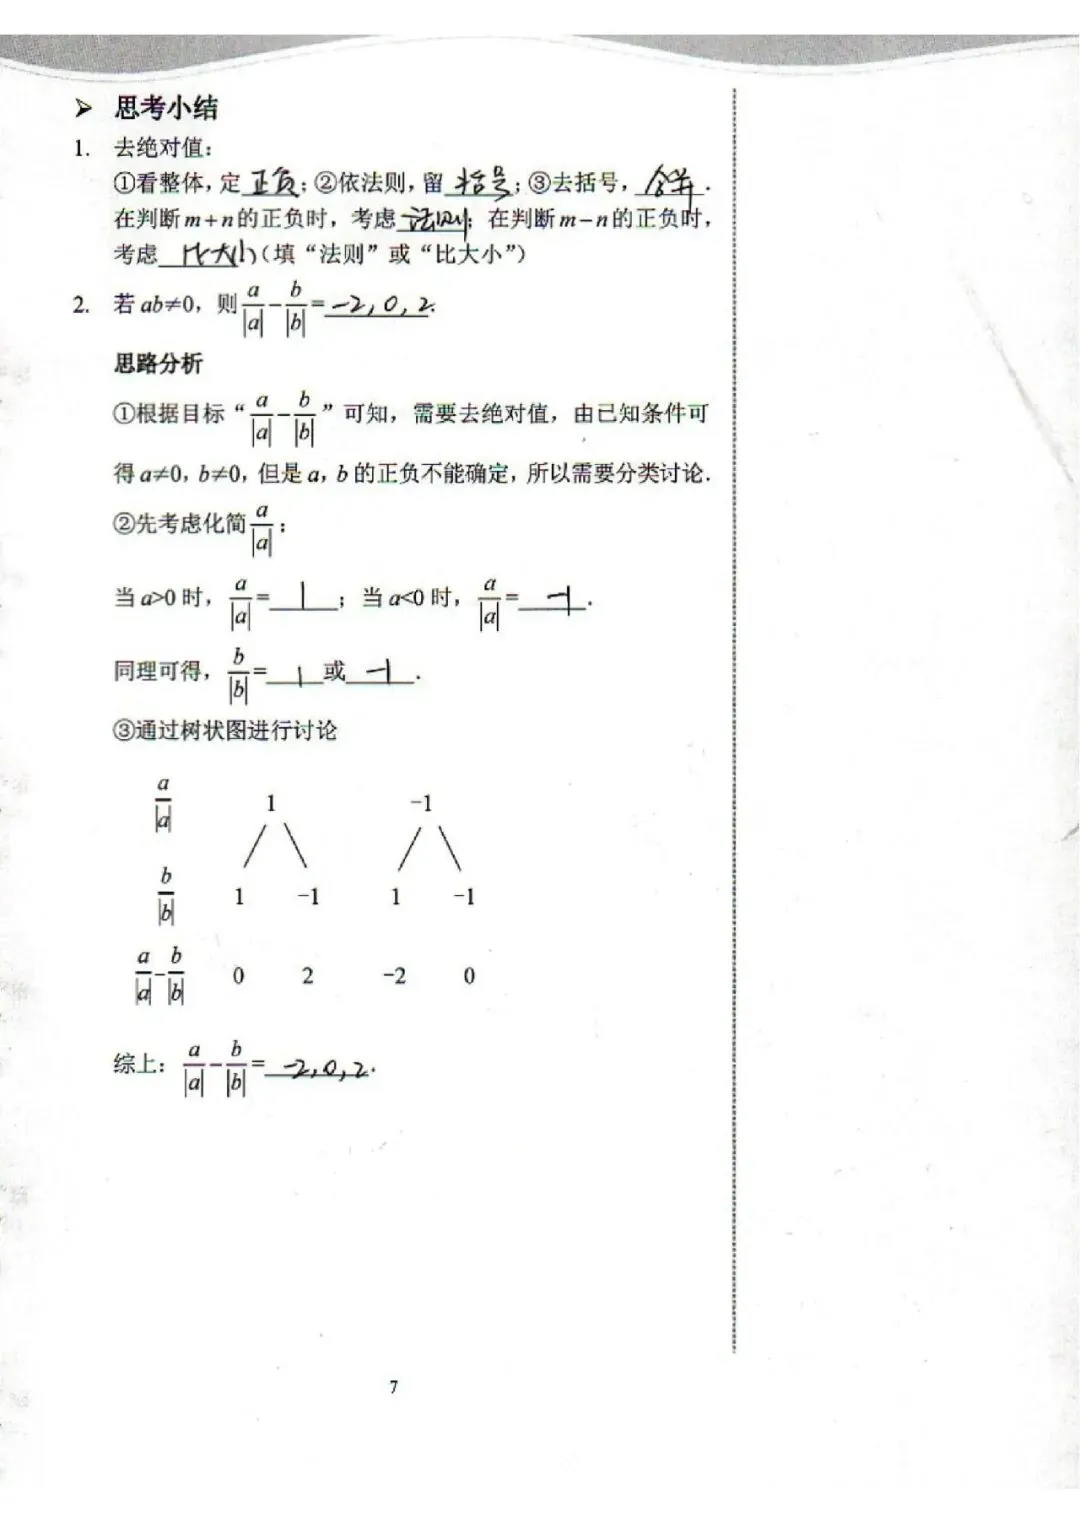 ➢ 思考小结
1. 去绝对值：
①看整体，定 正负；②依法则，留 括号；③去括号，合并.
在判断 m+n 的正负时，考虑 法则；在判断 m-n 的正负时，
考虑 比大小（填“法则”或“比大小”）
2. 若 ab≠0，则 a/|a| - b/|b| = -2,0,2.
思路分析
①根据目标“a/|a| - b/|b|”可知，需要去绝对值，由已知条件可
得 a≠0，b≠0，但是 a，b 的正负不能确定，所以需要分类讨论.
②先考虑化简 a/|a|；
当 a>0 时，a/|a| = 1；当 a<0 时，a/|a| = -1.
同理可得，b/|b| = 1 或 -1.
③通过树状图进行讨论
a/|a| 1 -1
b/|b| 1 -1 1 -1
a/|a| - b/|b| 0 2 -2 0
综上：a/|a| - b/|b| = -2,0,2.
7